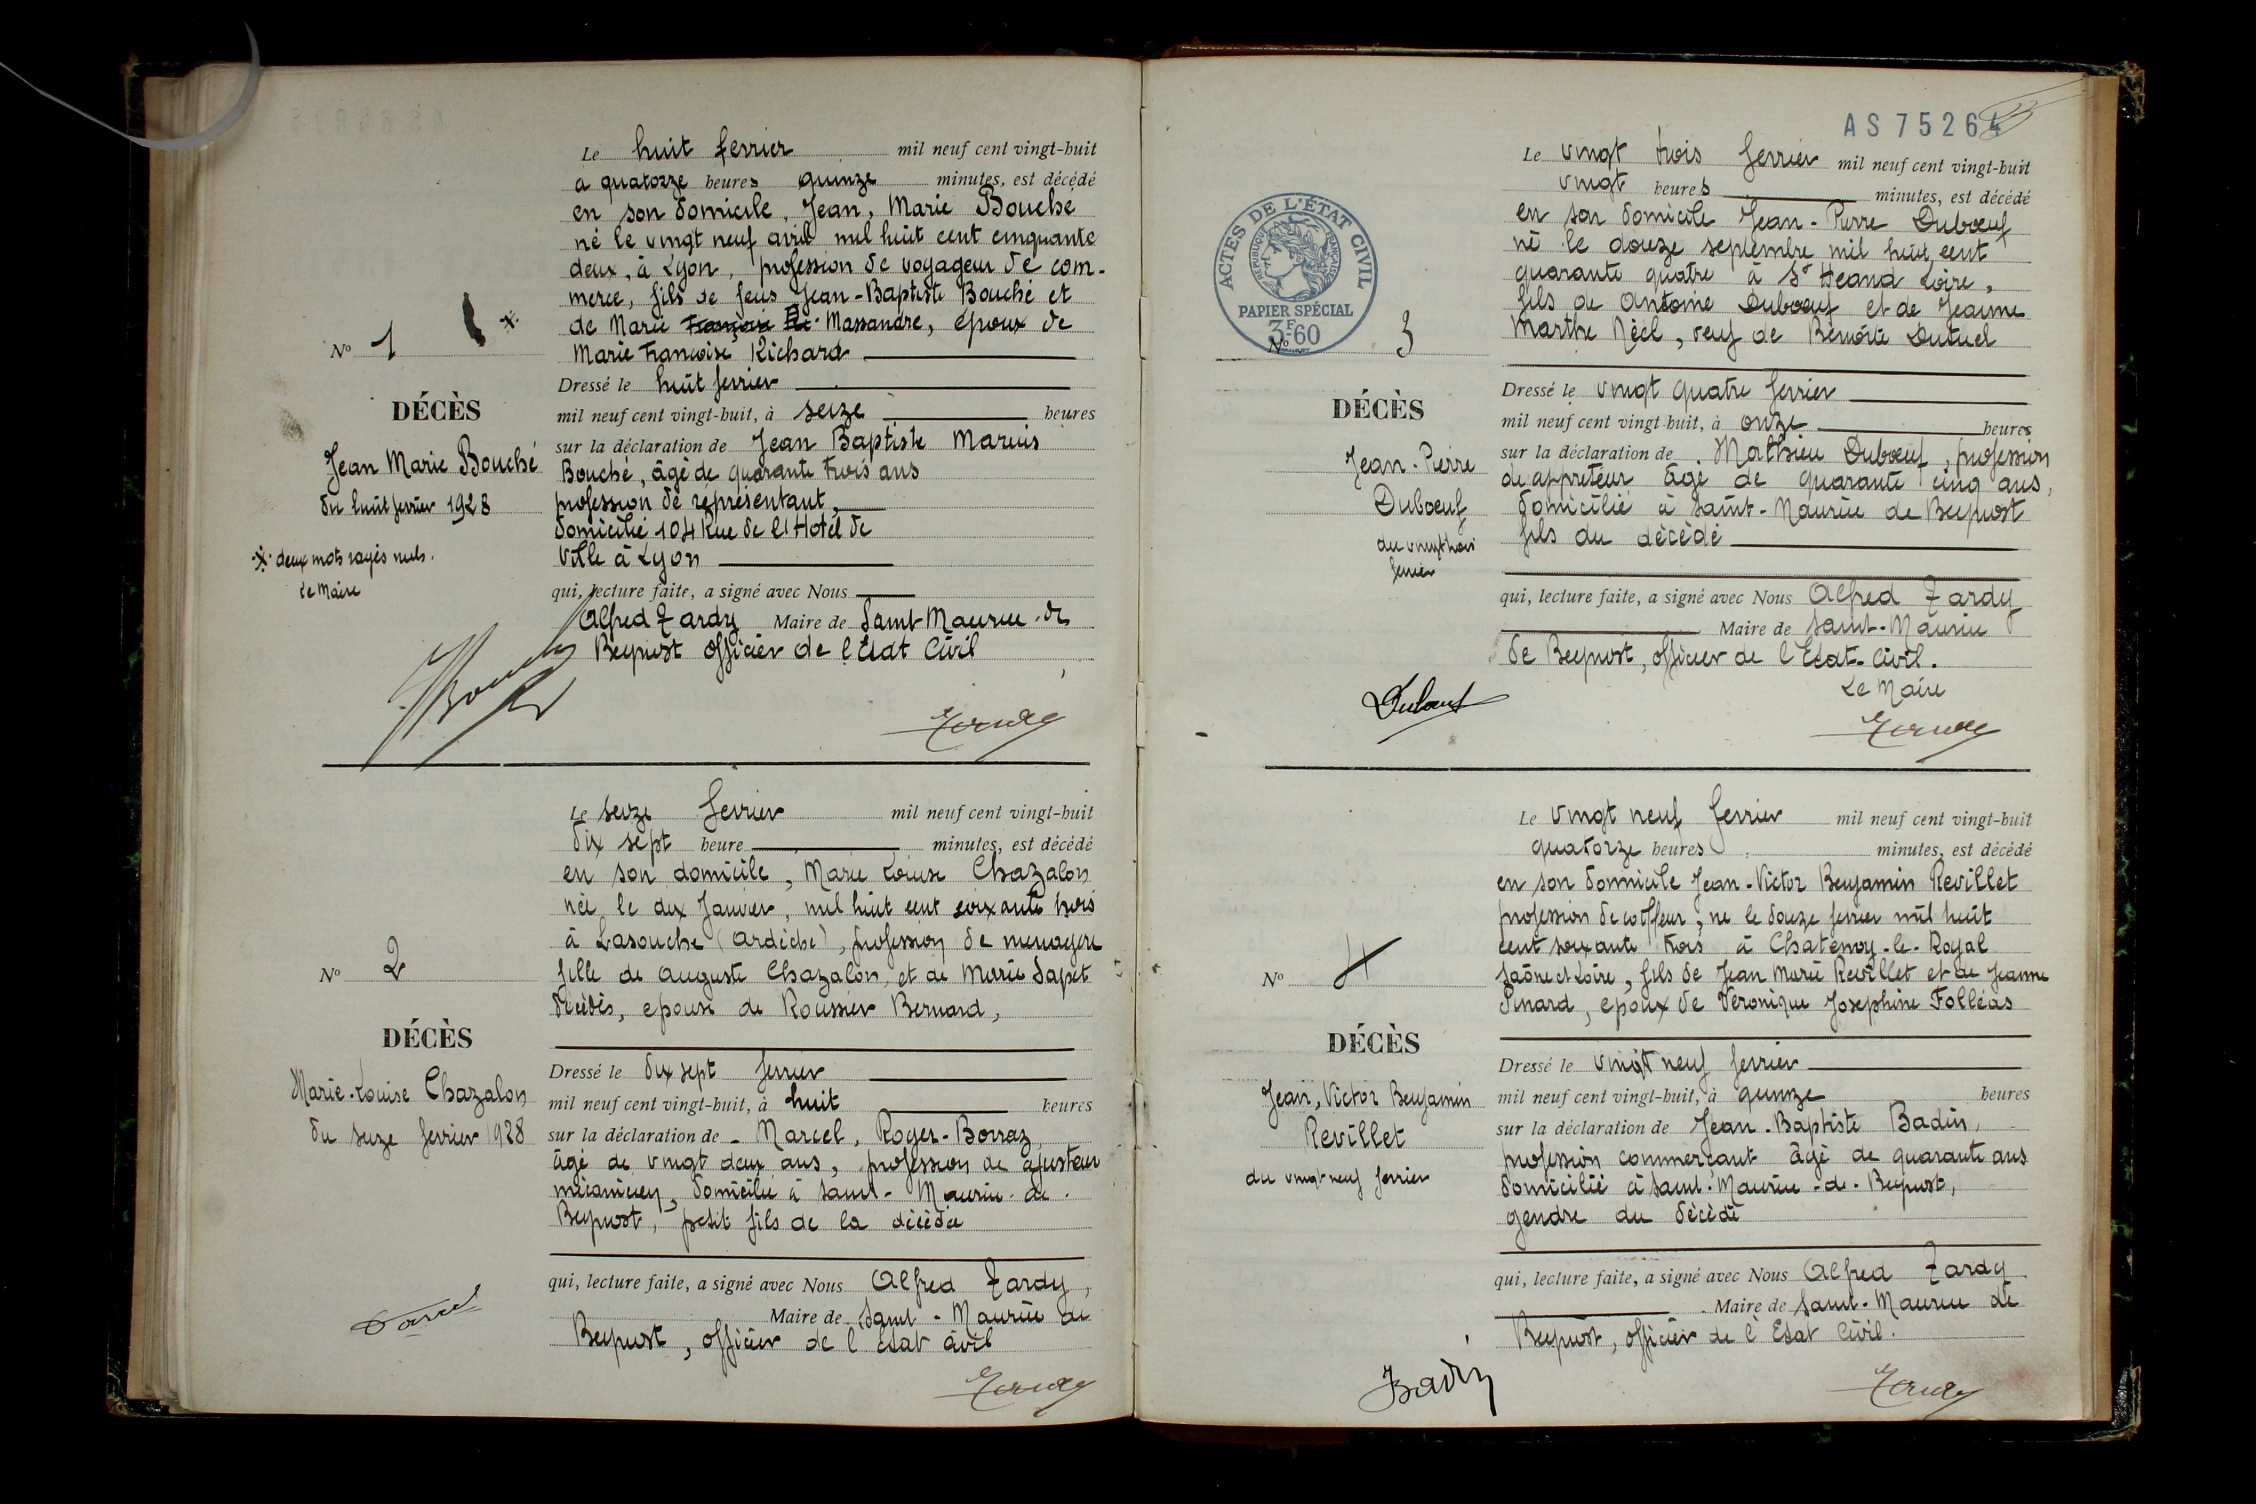 Le huit ferrier mil neuf cent vingt-huit
a quatorze heures quinze minutes, est décédé
en son domicile, Jean, Marie Bouché
né le vingt neuf avril mil huit cent cinquante
deux, à Lyon, profession de voyageur de com-
merce, fils de feus Jean-Baptiste Bouché et
de Marie Massandre, epoux de
Marie Françoise Richard
Nº 1
Dressé le huit ferrier
mil neuf cent vingt-huit, à seize heures
DÉCÈS
sur la déclaration de Jean Baptiste Marius
Jean Marie Bouché
Bouché, âgé de quarante trois ans
du huit ferrier 1928
profession de représentant,
domicilié 104 Rue de l'Hotel de
Ville à Lyon
deux mots rayés nuls.
Le Maire
qui, lecture faite, a signé avec Nous
Alfred Tardy Maire de Saint Maurice de
Beynost officier de l'Etat Civil
Le seize ferrier mil neuf cent vingt-huit
dix sept heure minutes, est décédé
en son domicile, Marie Louise Chazalon
née le dix Janvier, mil huit cent soixante trois
à Lasouche (Ardèche), profession de menagère
fille de Auguste Chazalon, et de Marie Sapet
décédés, epouse de Roussier Bernard,
Nº 2
DÉCÈS
Marie-Louise Chazalon
du seize ferrier 1928
Dressé le dix sept ferrier
mil neuf cent vingt-huit, à huit heures
sur la déclaration de Marcel, Roger-Borraz,
âgé de vingt deux ans, profession de ajusteur
mécanicien, domicilié à Saint-Maurice-de-
Beynost, petit fils de la décédée
qui, lecture faite, a signé avec Nous Alfred Tardy,
Maire de Saint-Maurice de
Beynost, officier de l'Etat civil
AS 75264
Le vingt trois ferrier mil neuf cent vingt-huit
vingt heures minutes, est décédé
en son domicile Jean-Pierre Dubœuf
né le douze septembre mil huit cent
quarante quatre à St Heand Loire,
fils de Antoine Dubœuf et de Jeanne
Marthe Néel, veuf de Benoîte Dutuel
ACTES DE L'ÉTAT CIVIL
RÉPUBLIQUE FRANÇAISE
PAPIER SPÉCIAL
3F60
Nº 3
DÉCÈS
Jean-Pierre
Dubœuf
du vingt trois
ferrier
Dressé le vingt quatre ferrier
mil neuf cent vingt-huit, à onze heures
sur la déclaration de Mathieu Dubœuf, profession
de appreteur âgé de quarante cinq ans,
domicilié à Saint-Maurice de Beynost
fils du décédé
qui, lecture faite, a signé avec Nous Alfred Tardy
Maire de Saint-Maurice
de Beynost, officier de l'Etat-Civil.
Le Maire
Dubœuf
Le vingt neuf ferrier mil neuf cent vingt-huit
quatorze heures minutes, est décédé
en son domicile Jean-Victor Benjamin Revillet
profession de coiffeur, né le douze ferrier mil huit
cent soixante trois à Chatenoy-le-Royal
Saône et Loire, fils de Jean Marie Revillet et de Jeanne
Pinard, epoux de Véronique Josephine Folléas
Nº 4
DÉCÈS
Jean, Victor Benjamin
Revillet
du vingt neuf ferrier
Dressé le vingt neuf ferrier
mil neuf cent vingt-huit, à quinze heures
sur la déclaration de Jean-Baptiste Badin,
profession commerçant âgé de quarante ans
domicilié à Saint-Maurice-de-Beynost,
gendre du décédé
qui, lecture faite, a signé avec Nous Alfred Tardy
Maire de Saint-Maurice de
Beynost, officier de l'Etat Civil.
Badin